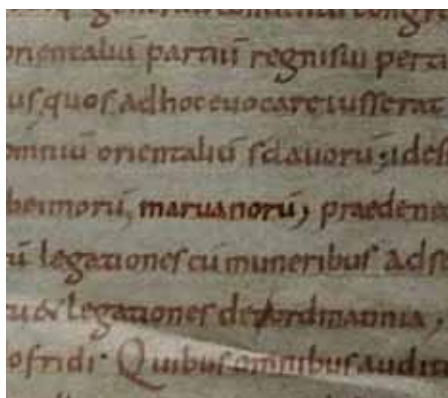 generali conuentu congr
orientaliū partiū regnisui perti
us, quos adhoc euocare iusserat
omniū orientaliū sclauorū; ides
heimorū, maruanorū, praedene
rū legationes cū muneribus adse
tu & legationes de nordmannia,
ofridi. Quibus omnibus auditi